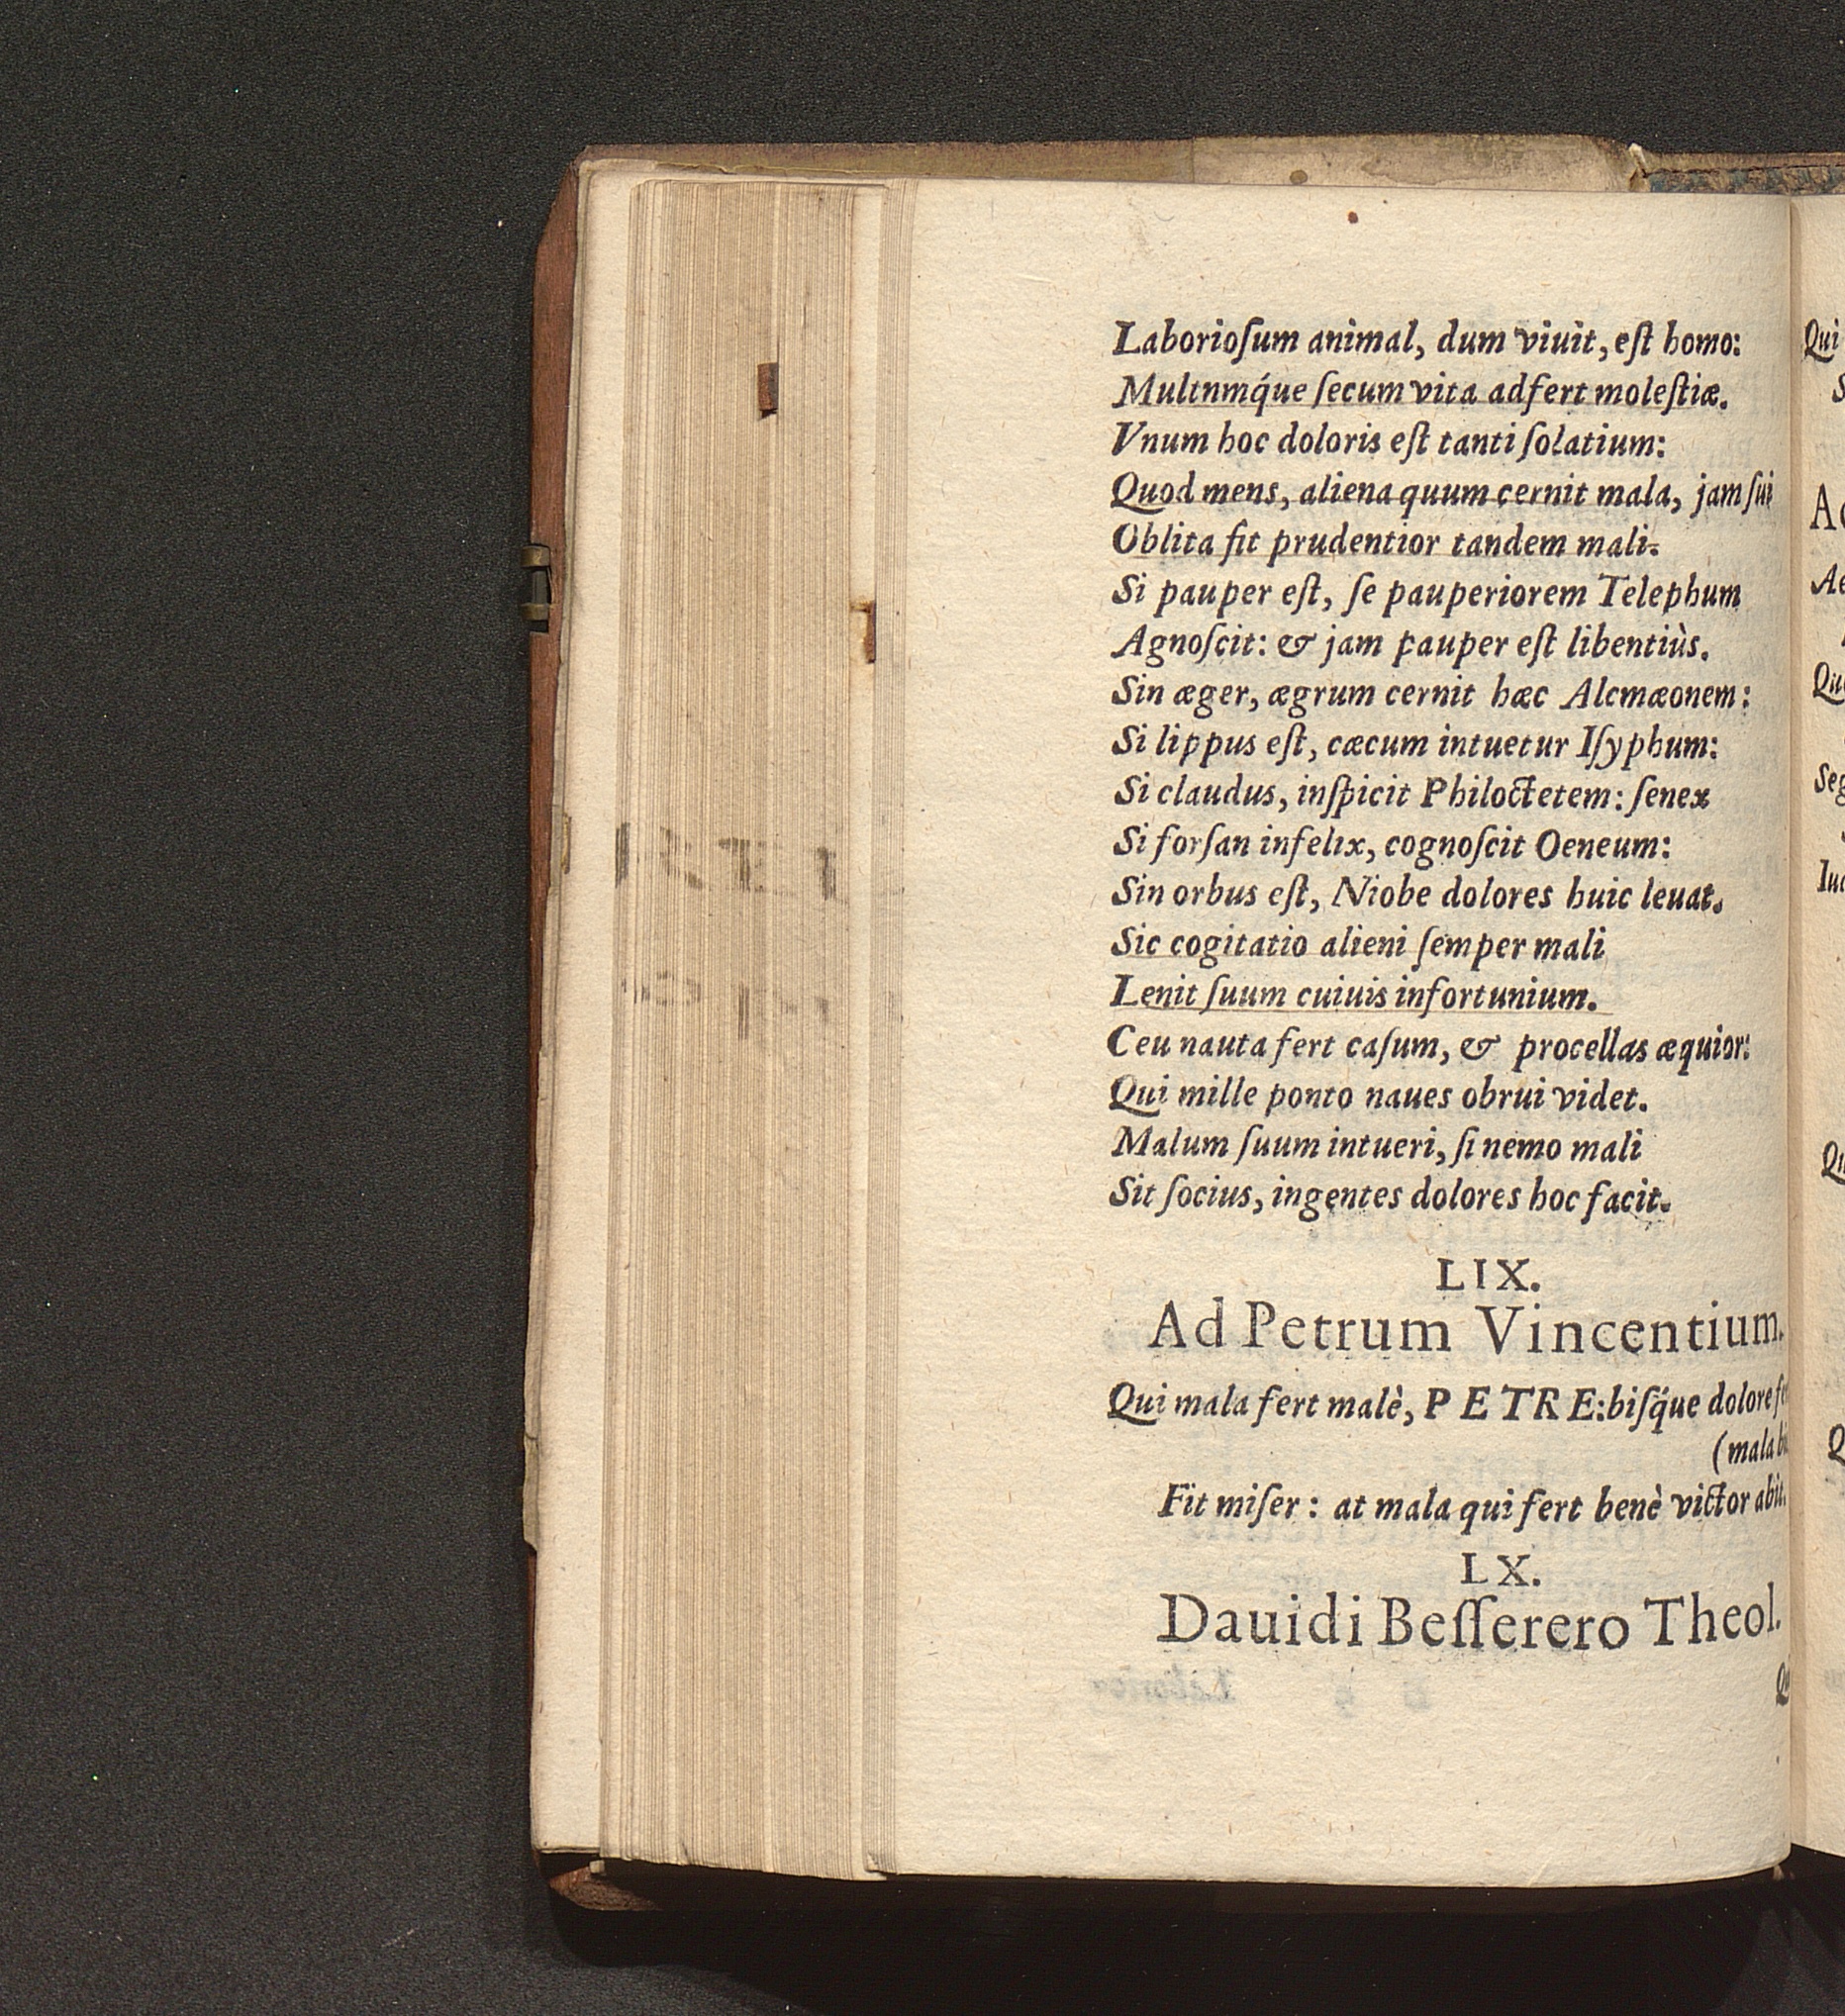 Laborioſum animal, dum viuit, eſt homo:
Multnmq́ue ſecum vita adfert moleſtiæ.
Vnum hoc doloris eſt tanti ſolatium:
Quod mens, aliena quum cernit mala, jam ſui
Oblita fit prudentior tandem mali.
Si pauper eſt, ſe pauperiorem Telephum
Agnoſcit: & jam pauper eſt libentiùs.
Sin æger, ægrum cernit hæc Alcmæonem:
Si lippus eſt, cæcum intuetur Iſyphum:
Si claudus, inſpicit Philoctetem: ſenex
Si forſan infelix, cognoſcit Oeneum:
Sin orbus eſt, Niobe dolores huic leuat.
Sic cogitatio alieni ſemper mali
Lenit ſuum cuiuis infortunium.
Ceu nauta fert caſum, & procellas æquior:
Qui mille ponto naues obrui videt.
Malum ſuum intueri, ſi nemo mali
Sit ſocius, ingentes dolores hoc facit.
LIX.
Ad Petrum Vincentium.
Qui mala fert malè, PETRE: biſq́ue dolore
(mala
Fit miſer: at mala qui fert benè victor abit.
LX.
Dauidi Beſſerero Theol.
Qui